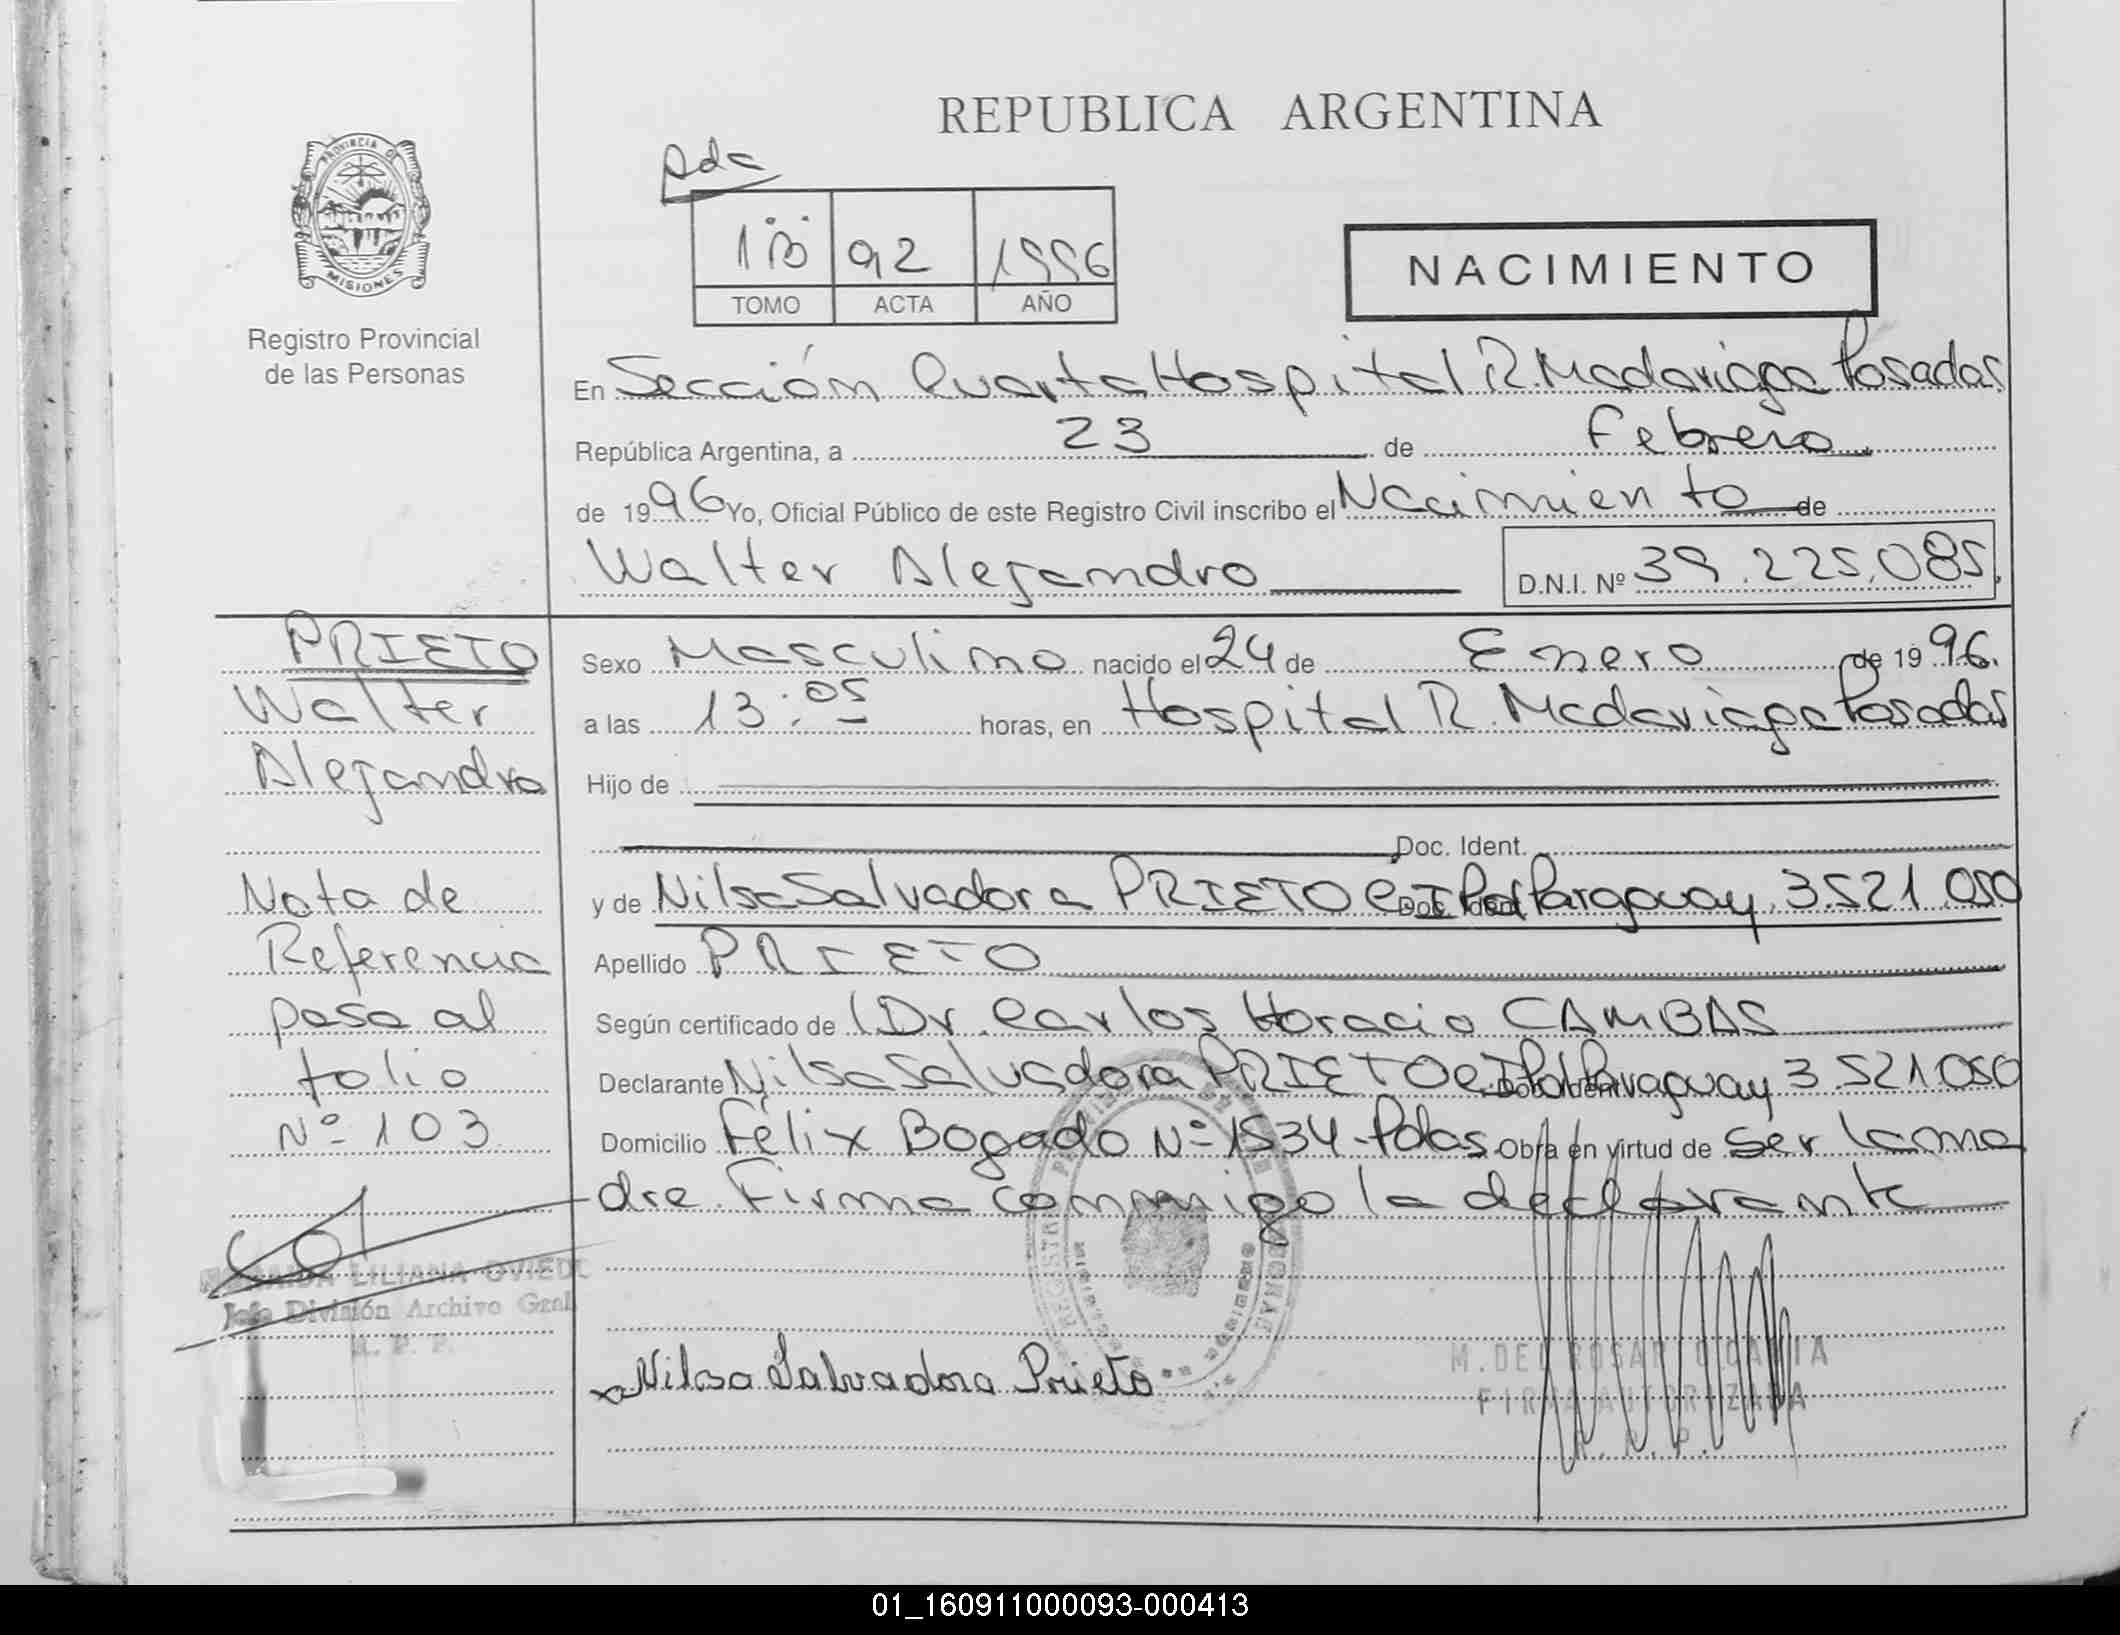 REPUBLICA ARGENTINA
PROVINCIA DE
MISIONES
Registro Provincial
de las Personas
Pdas
1B 92 1996
TOMO ACTA AÑO
NACIMIENTO
En Sección Cuarta Hospital R. Madariaga Posadas
República Argentina, a 23 de Febrero
de 1996 Yo, Oficial Público de este Registro Civil inscribo el Nacimiento de
Walter Alejandro D.N.I. Nº 39.225.085.
PRIETO
Walter
Alejandro
Nota de
Referencia
pasa al
folio
Nº 103
LILIANA OVIEDO
Jefa División Archivo Gral
R. P. P.
Sexo Masculino nacido el 24 de Enero de 1996.
a las 13:05 horas, en Hospital R. Madariaga Posadas
Hijo de
Doc. Ident.
y de Nilsa Salvadora PRIETO C.I. Pol Paraguay 3.521.050
Apellido PRIETO
Según certificado de Dr. Carlos Horacio CAMBAS
Declarante Nilsa Salvadora PRIETO C.I. Pol Paraguay 3.521.050
Domicilio Félix Bogado Nº 1534 - Pdas. Obra en virtud de ser la ma
dre. Firma conmigo la declarante
x Nilsa Salvadora Prieto
M. DEL ROSARIO
FIRMA AUTORIZADA
R. P. P.
01_160911000093-000413